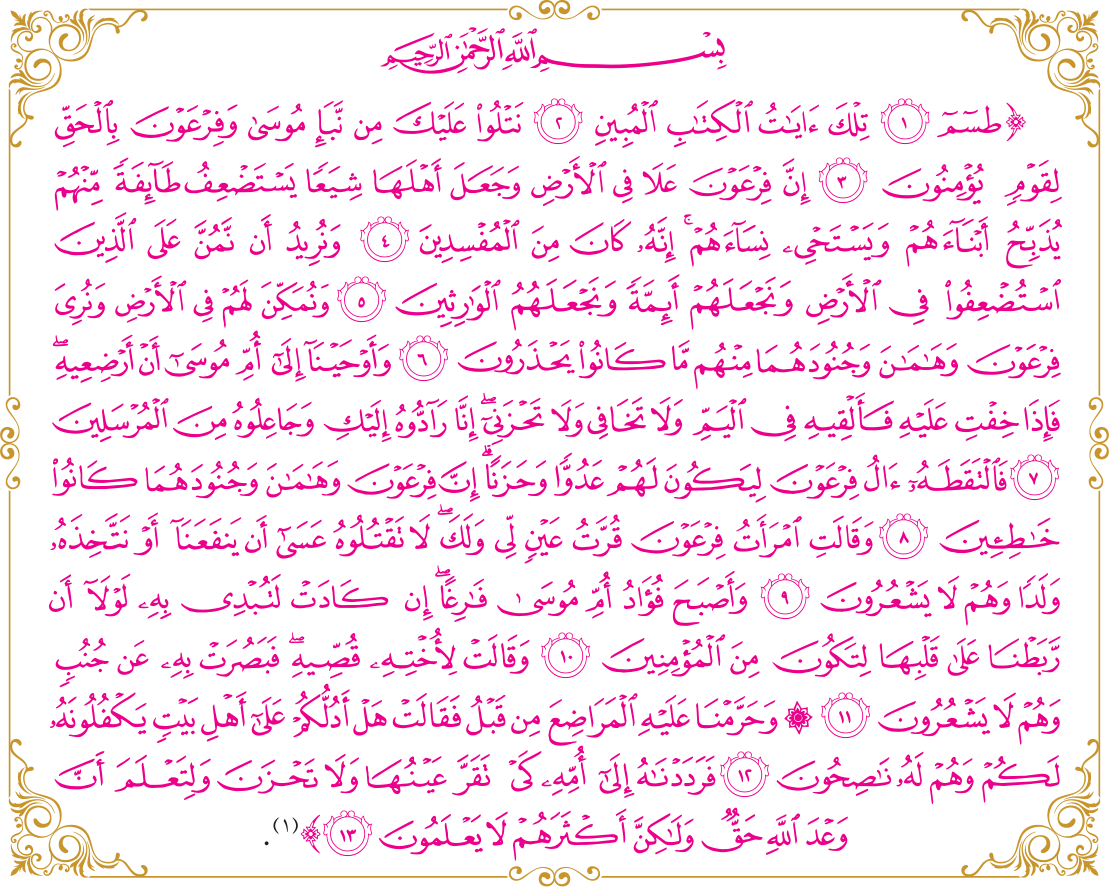 بِسْمِ ٱللَّهِ ٱلرَّحْمَٰنِ ٱلرَّحِيمِ
﴿ طسٓمٓ ١ تِلْكَ ءَايَٰتُ ٱلْكِتَٰبِ ٱلْمُبِينِ ٢ نَتْلُوا۟ عَلَيْكَ مِن نَّبَإِ مُوسَىٰ وَفِرْعَوْنَ بِٱلْحَقِّ
لِقَوْمٍ يُؤْمِنُونَ ٣ إِنَّ فِرْعَوْنَ عَلَا فِى ٱلْأَرْضِ وَجَعَلَ أَهْلَهَا شِيَعًا يَسْتَضْعِفُ طَآئِفَةً مِّنْهُمْ
يُذَبِّحُ أَبْنَآءَهُمْ وَيَسْتَحْىِۦ نِسَآءَهُمْ ۚ إِنَّهُۥ كَانَ مِنَ ٱلْمُفْسِدِينَ ٤ وَنُرِيدُ أَن نَّمُنَّ عَلَى ٱلَّذِينَ
ٱسْتُضْعِفُوا۟ فِى ٱلْأَرْضِ وَنَجْعَلَهُمْ أَئِمَّةً وَنَجْعَلَهُمُ ٱلْوَٰرِثِينَ ٥ وَنُمَكِّنَ لَهُمْ فِى ٱلْأَرْضِ وَنُرِىَ
فِرْعَوْنَ وَهَٰمَٰنَ وَجُنُودَهُمَا مِنْهُم مَّا كَانُوا۟ يَحْذَرُونَ ٦ وَأَوْحَيْنَآ إِلَىٰٓ أُمِّ مُوسَىٰٓ أَنْ أَرْضِعِيهِ ۖ
فَإِذَا خِفْتِ عَلَيْهِ فَأَلْقِيهِ فِى ٱلْيَمِّ وَلَا تَخَافِى وَلَا تَحْزَنِىٓ ۖ إِنَّا رَآدُّوهُ إِلَيْكِ وَجَاعِلُوهُ مِنَ ٱلْمُرْسَلِينَ
٧ فَٱلْتَقَطَهُۥٓ ءَالُ فِرْعَوْنَ لِيَكُونَ لَهُمْ عَدُوًّا وَحَزَنًا ۗ إِنَّ فِرْعَوْنَ وَهَٰمَٰنَ وَجُنُودَهُمَا كَانُوا۟
خَٰطِـِٔينَ ٨ وَقَالَتِ ٱمْرَأَتُ فِرْعَوْنَ قُرَّتُ عَيْنٍ لِّى وَلَكَ ۖ لَا تَقْتُلُوهُ عَسَىٰٓ أَن يَنفَعَنَآ أَوْ نَتَّخِذَهُۥ
وَلَدًا وَهُمْ لَا يَشْعُرُونَ ٩ وَأَصْبَحَ فُؤَادُ أُمِّ مُوسَىٰ فَٰرِغًا ۖ إِن كَادَتْ لَتُبْدِى بِهِۦ لَوْلَآ أَن
رَّبَطْنَا عَلَىٰ قَلْبِهَا لِتَكُونَ مِنَ ٱلْمُؤْمِنِينَ ١٠ وَقَالَتْ لِأُخْتِهِۦ قُصِّيهِ ۖ فَبَصُرَتْ بِهِۦ عَن جُنُبٍ
وَهُمْ لَا يَشْعُرُونَ ١١ ۞ وَحَرَّمْنَا عَلَيْهِ ٱلْمَرَاضِعَ مِن قَبْلُ فَقَالَتْ هَلْ أَدُلُّكُمْ عَلَىٰٓ أَهْلِ بَيْتٍ يَكْفُلُونَهُۥ
لَكُمْ وَهُمْ لَهُۥ نَٰصِحُونَ ١٢ فَرَدَدْنَٰهُ إِلَىٰٓ أُمِّهِۦ كَىْ تَقَرَّ عَيْنُهَا وَلَا تَحْزَنَ وَلِتَعْلَمَ أَنَّ
وَعْدَ ٱللَّهِ حَقٌّ وَلَٰكِنَّ أَكْثَرَهُمْ لَا يَعْلَمُونَ ١٣ ﴾ (١).